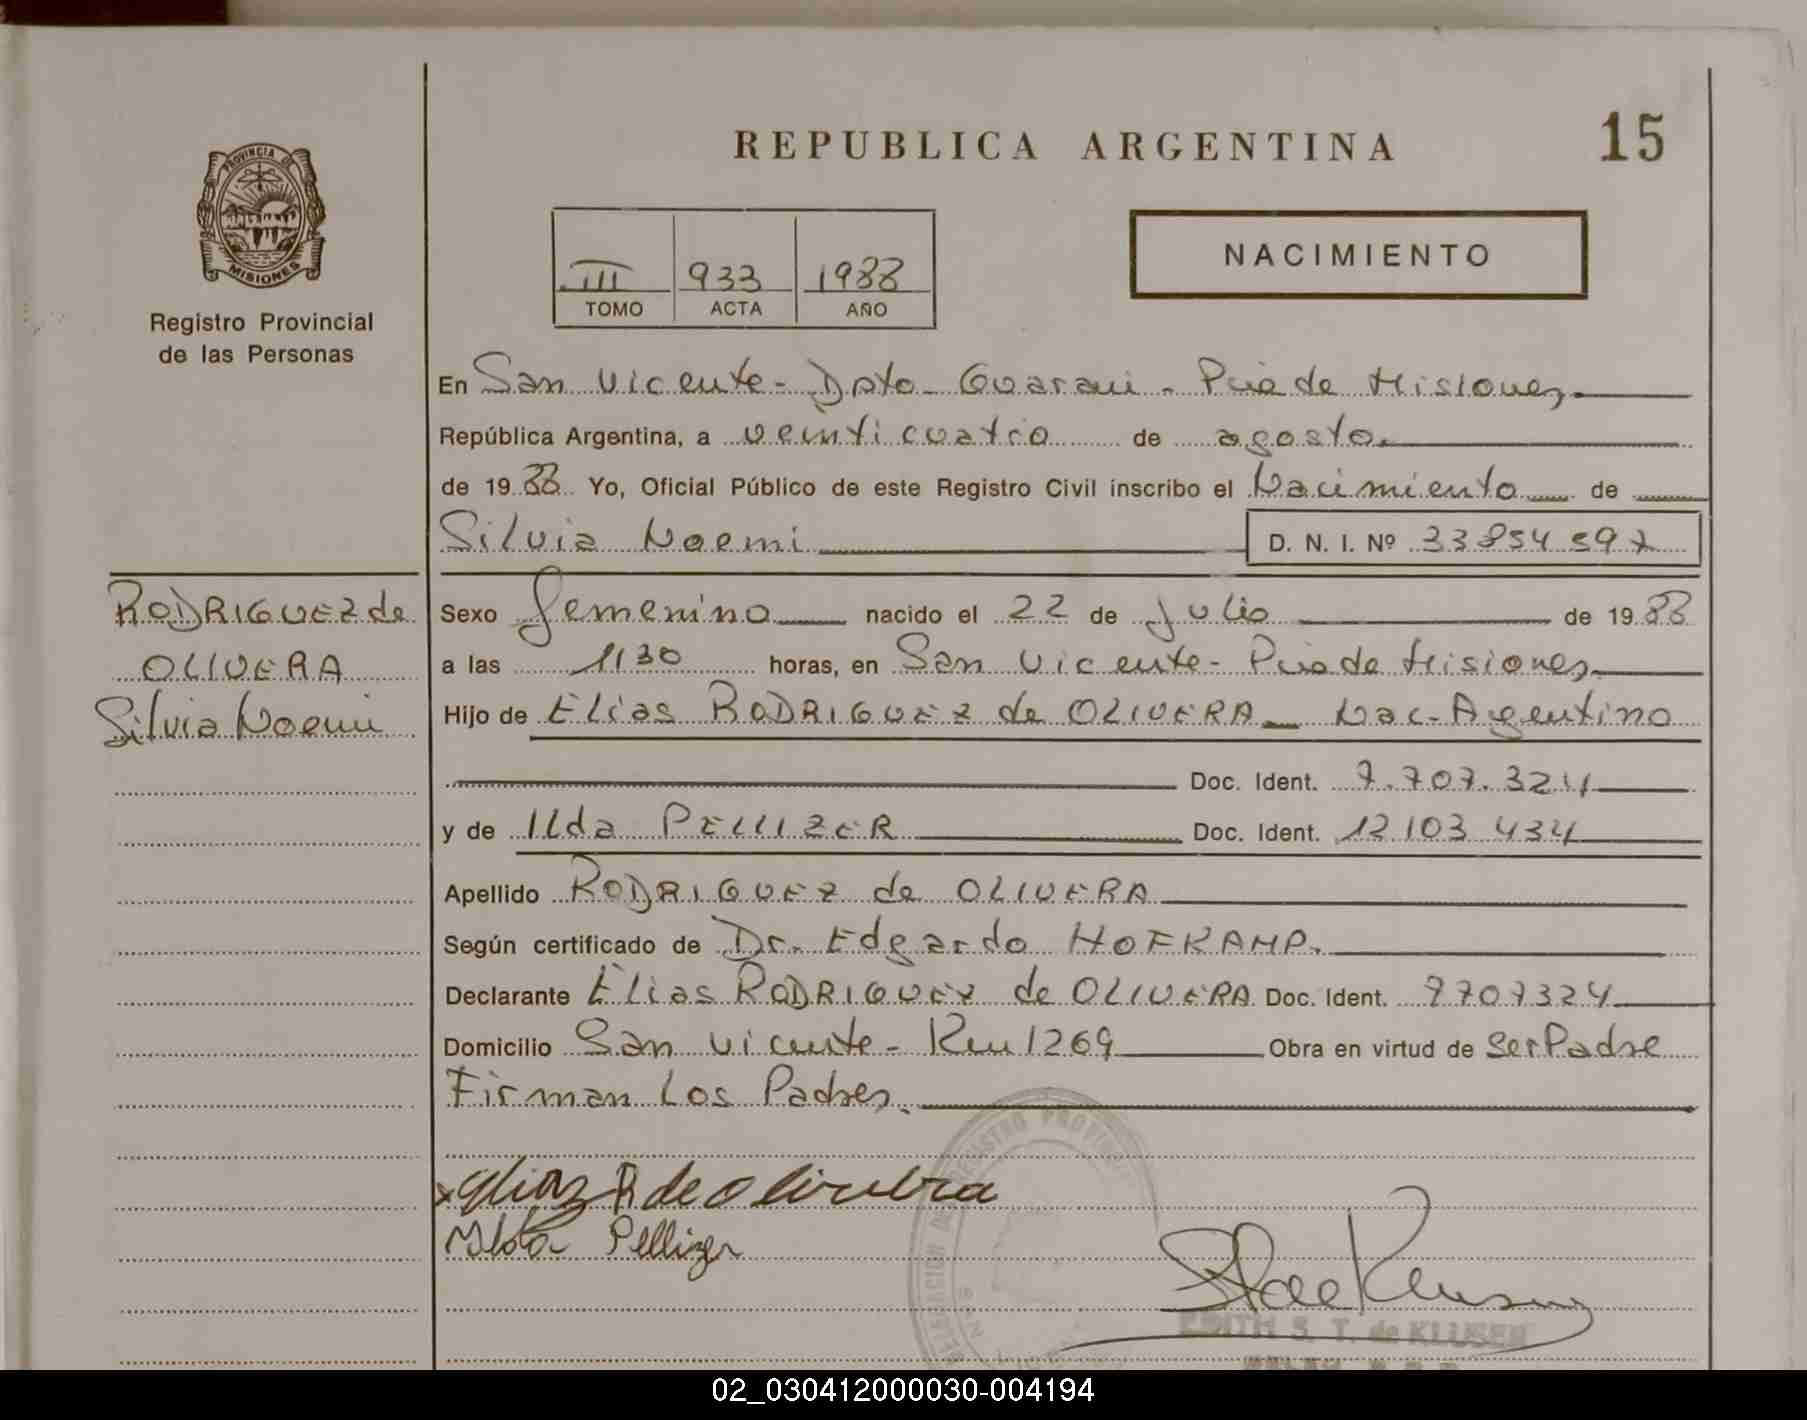 REPUBLICA ARGENTINA
15
PROVINCIA DE
MISIONES
Registro Provincial
de las Personas
III 933 1988
TOMO ACTA AÑO
NACIMIENTO
En San Vicente - Dpto - Guarani - Pcia de Misiones
República Argentina, a veinti cuatro de agosto
de 19 88 Yo, Oficial Público de este Registro Civil inscribo el Nacimiento de
Silvia Noemi D. N. I. Nº 33854597
RODRIGUEZ de
OLIVERA
Silvia Noemi
Sexo femenino nacido el 22 de Julio de 19 88
a las 1130 horas, en San Vicente - Pcia de Misiones
Hijo de Elias RODRIGUEZ de OLIVERA Nac - Argentino
Doc. Ident. 7.707.324
y de Ilda PELLIZER Doc. Ident. 12 103 434
Apellido RODRIGUEZ de OLIVERA
Según certificado de Dr. Edgardo HOFKAMP.
Declarante Elias RODRIGUEZ de OLIVERA Doc. Ident. 7707324
Domicilio San Vicente - Km 1269 Obra en virtud de Ser Padre
Firman Los Padres.
Elias R de Oliveira
Ilda Pellizer
REGISTRO PROVINCIAL
DELEGACION
EDITH S. T. de KLUSER
02_030412000030-004194